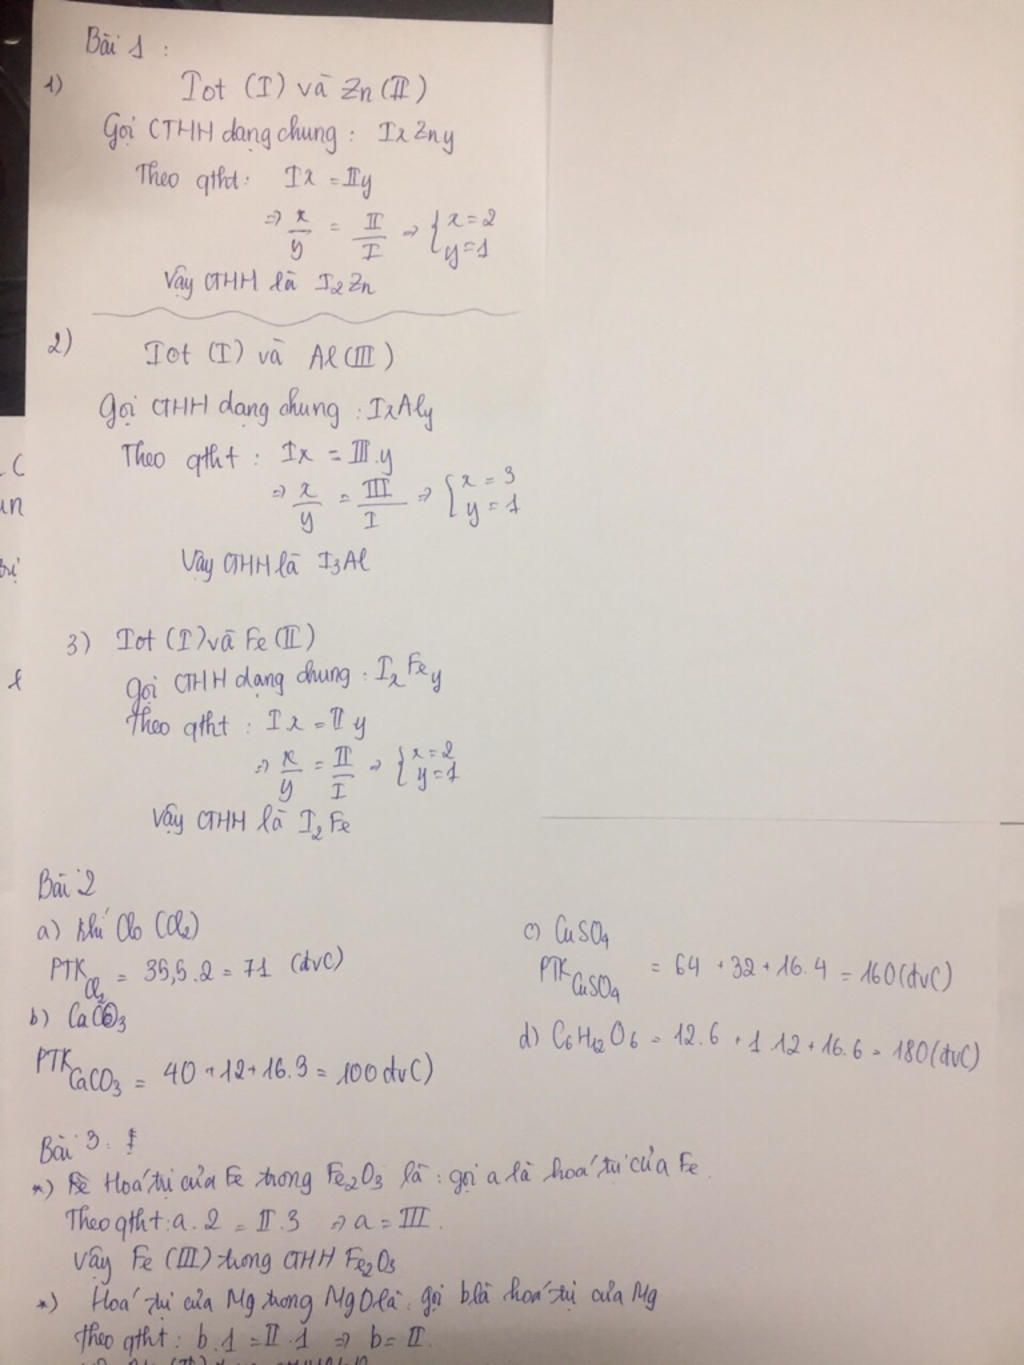 Bài 1 :
1) Iot (I) và Zn (II)
Gọi CTHH dạng chung : IxZny
Theo qtht : Ix = IIy
⇒ x/y = II/I ⇒ { x = 2
y = 1
Vậy CTHH là I₂Zn
2) Iot (I) và Al (III)
Gọi CTHH dạng chung : IxAly
Theo qtht : Ix = III.y
⇒ x/y = III/I ⇒ { x = 3
y = 1
Vậy CTHH là I₃Al
3) Iot (I) và Fe (II)
gọi CTHH dạng chung : IxFey
Theo qtht : Ix = II y
⇒ x/y = II/I ⇒ { x = 2
y = 1
Vậy CTHH là I₂Fe
Bài 2
a) khí Clo (Cl₂)
PTK Cl₂ = 35,5.2 = 71 (đvC)
b) CaCO₃
PTK CaCO₃ = 40 + 12 + 16.3 = 100 đvC)
c) CuSO₄
PTK CuSO₄ = 64 + 32 + 16.4 = 160 (đvC)
d) C₆H₁₂O₆ = 12.6 + 1.12 + 16.6 = 180 (đvC)
Bài 3 :
*) Hoá trị của Fe trong Fe₂O₃ là : gọi a là hoá trị của Fe.
Theo qtht : a.2 = II.3 ⇒ a = III.
Vậy Fe (III) trong CTHH Fe₂O₃
*) Hoá trị của Mg trong MgO là : gọi b là hoá trị của Mg
Theo qtht : b.1 = II.1 ⇒ b = II.